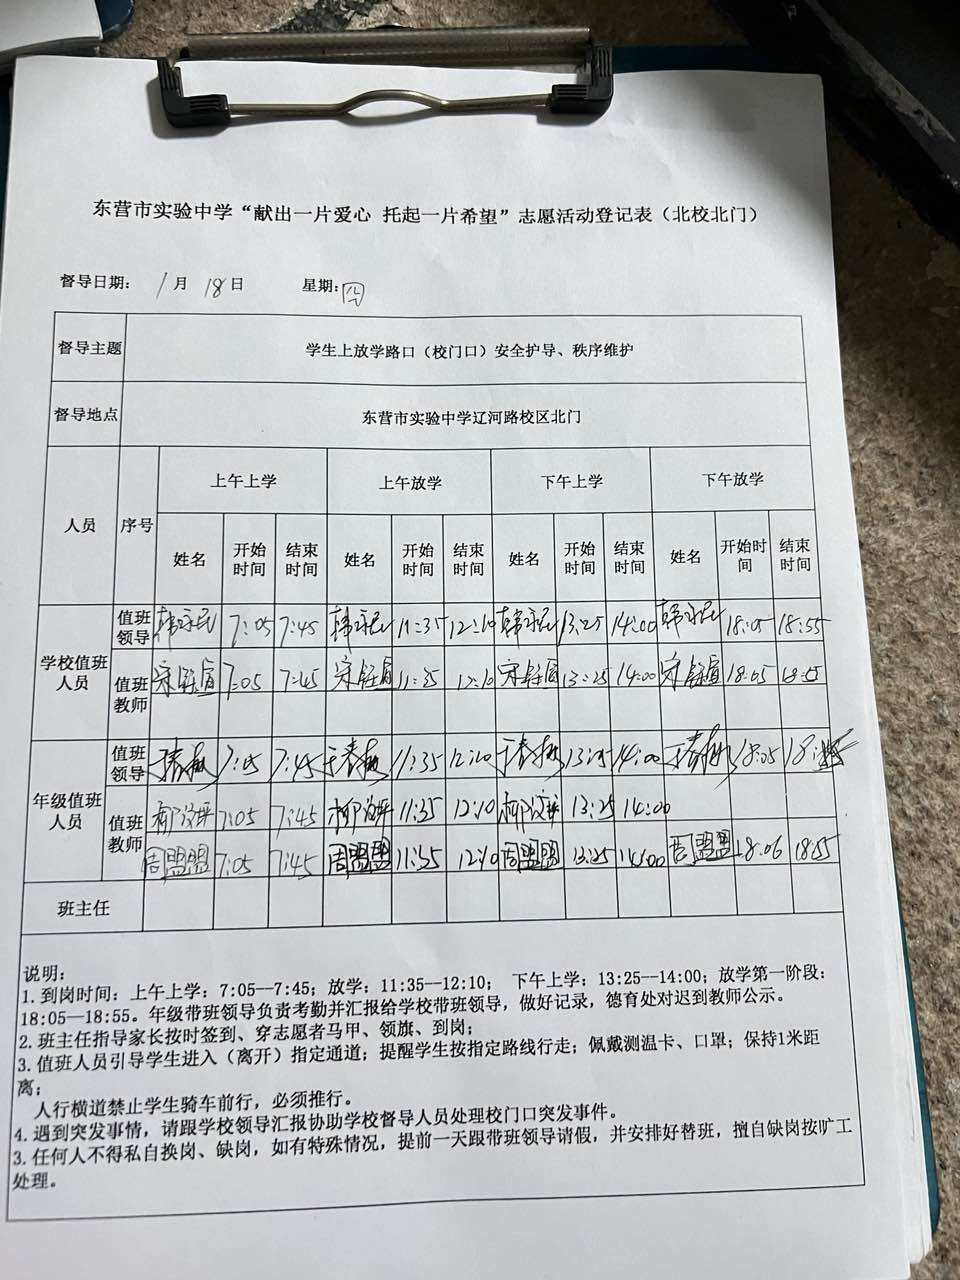 东营市实验中学“献出一片爱心 托起一片希望”志愿活动登记表（北校北门）
督导日期： 1月 18日 星期：四
督导主题 学生上放学路口（校门口）安全护导、秩序维护
督导地点 东营市实验中学辽河路校区北门
人员 序号 上午上学 上午放学 下午上学 下午放学
姓名 开始时间 结束时间 姓名 开始时间 结束时间 姓名 开始时间 结束时间 姓名 开始时间 结束时间
学校值班人员 值班领导 7:05 7:45 11:35 12:10 13:25 14:00 18:05 18:55
值班教师 7:05 7:45 11:35 12:10 13:25 14:00 18:05 18:55
年级值班人员 值班领导 于春梅 7:05 7:45 于春梅 11:35 12:10 于春梅 13:25 14:00 于春梅 18:05
值班教师 7:05 7:45 11:35 12:10 13:25 14:00
周盟盟 7:05 7:45 周盟盟 11:35 12:10 周盟盟 13:25 14:00 周盟盟 18:06 18:55
班主任
说明：
1.到岗时间：上午上学：7:05--7:45；放学：11:35--12:10； 下午上学：13:25--14:00；放学第一阶段：
18:05--18:55。年级带班领导负责考勤并汇报给学校带班领导，做好记录，德育处对迟到教师公示。
2.班主任指导家长按时签到、穿志愿者马甲、领旗、到岗；
3.值班人员引导学生进入（离开）指定通道；提醒学生按指定路线行走；佩戴测温卡、口罩；保持1米距
离；
人行横道禁止学生骑车前行，必须推行。
4.遇到突发事情，请跟学校领导汇报协助学校督导人员处理校门口突发事件。
3.任何人不得私自换岗、缺岗，如有特殊情况，提前一天跟带班领导请假，并安排好替班，擅自缺岗按旷工
处理。